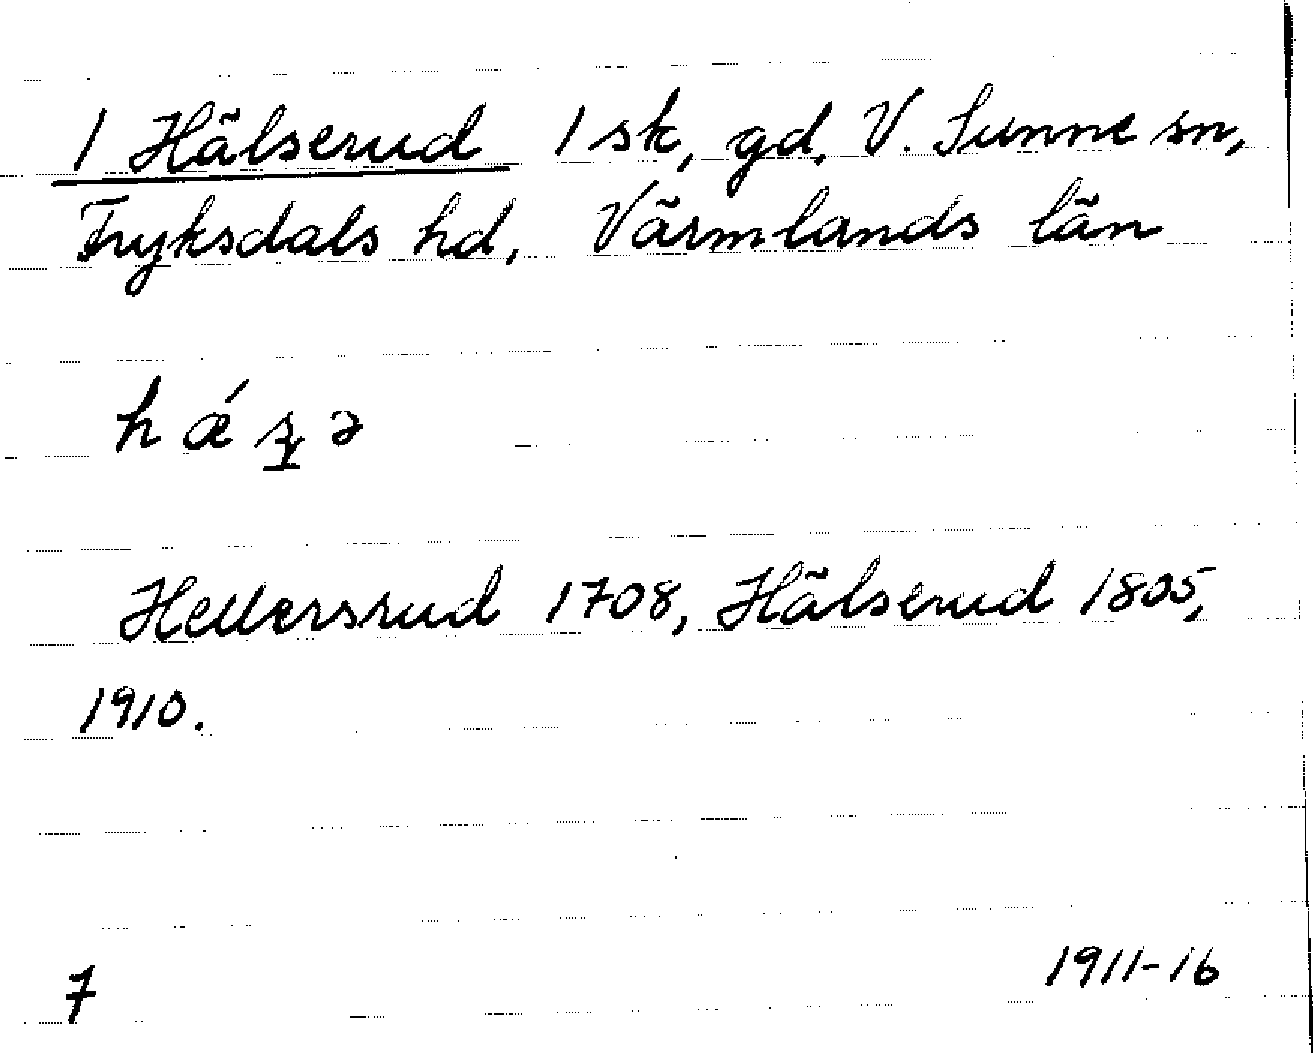 1 Hälserud 1 sk, gd, V. Sunne sn,
Fryksdals hd, Värmlands län
h ǽ ʂ ə
Hellersrud 1708, Hälserud 1805,
1910.
7 1911-16